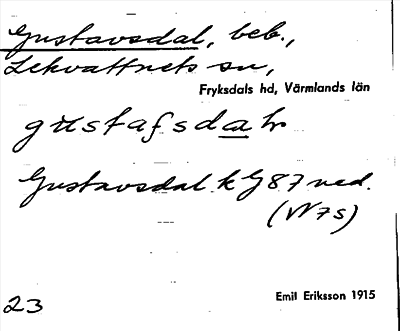 Gustavsdal, beb.,
Lekvattnets sn,
Fryksdals hd, Värmlands län
gustafsdal
Gustavsdal k G 87 ned.
(VV 7 s)
Emil Eriksson 1915
23